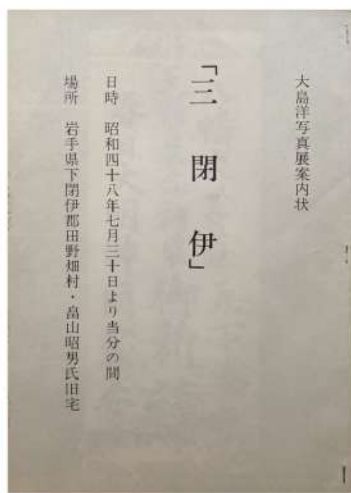 大島洋写真展案内状
「三閉伊」
日時　昭和四十八年七月三十日より当分の間
場所　岩手県下閉伊郡田野畑村・畠山昭男氏旧宅